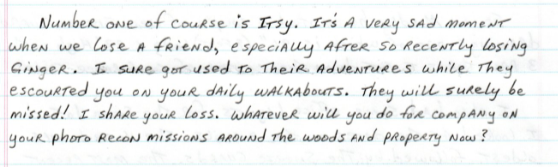 Number one of course is Itsy. It's a very sad moment
when we lose a friend, especially after so recently losing
Ginger. I sure got used to their adventures while they
escourted you on your daily walkabouts. They will surely be
missed! I share your loss. Whatever will you do for company on
your photo recon missions around the woods and property now?